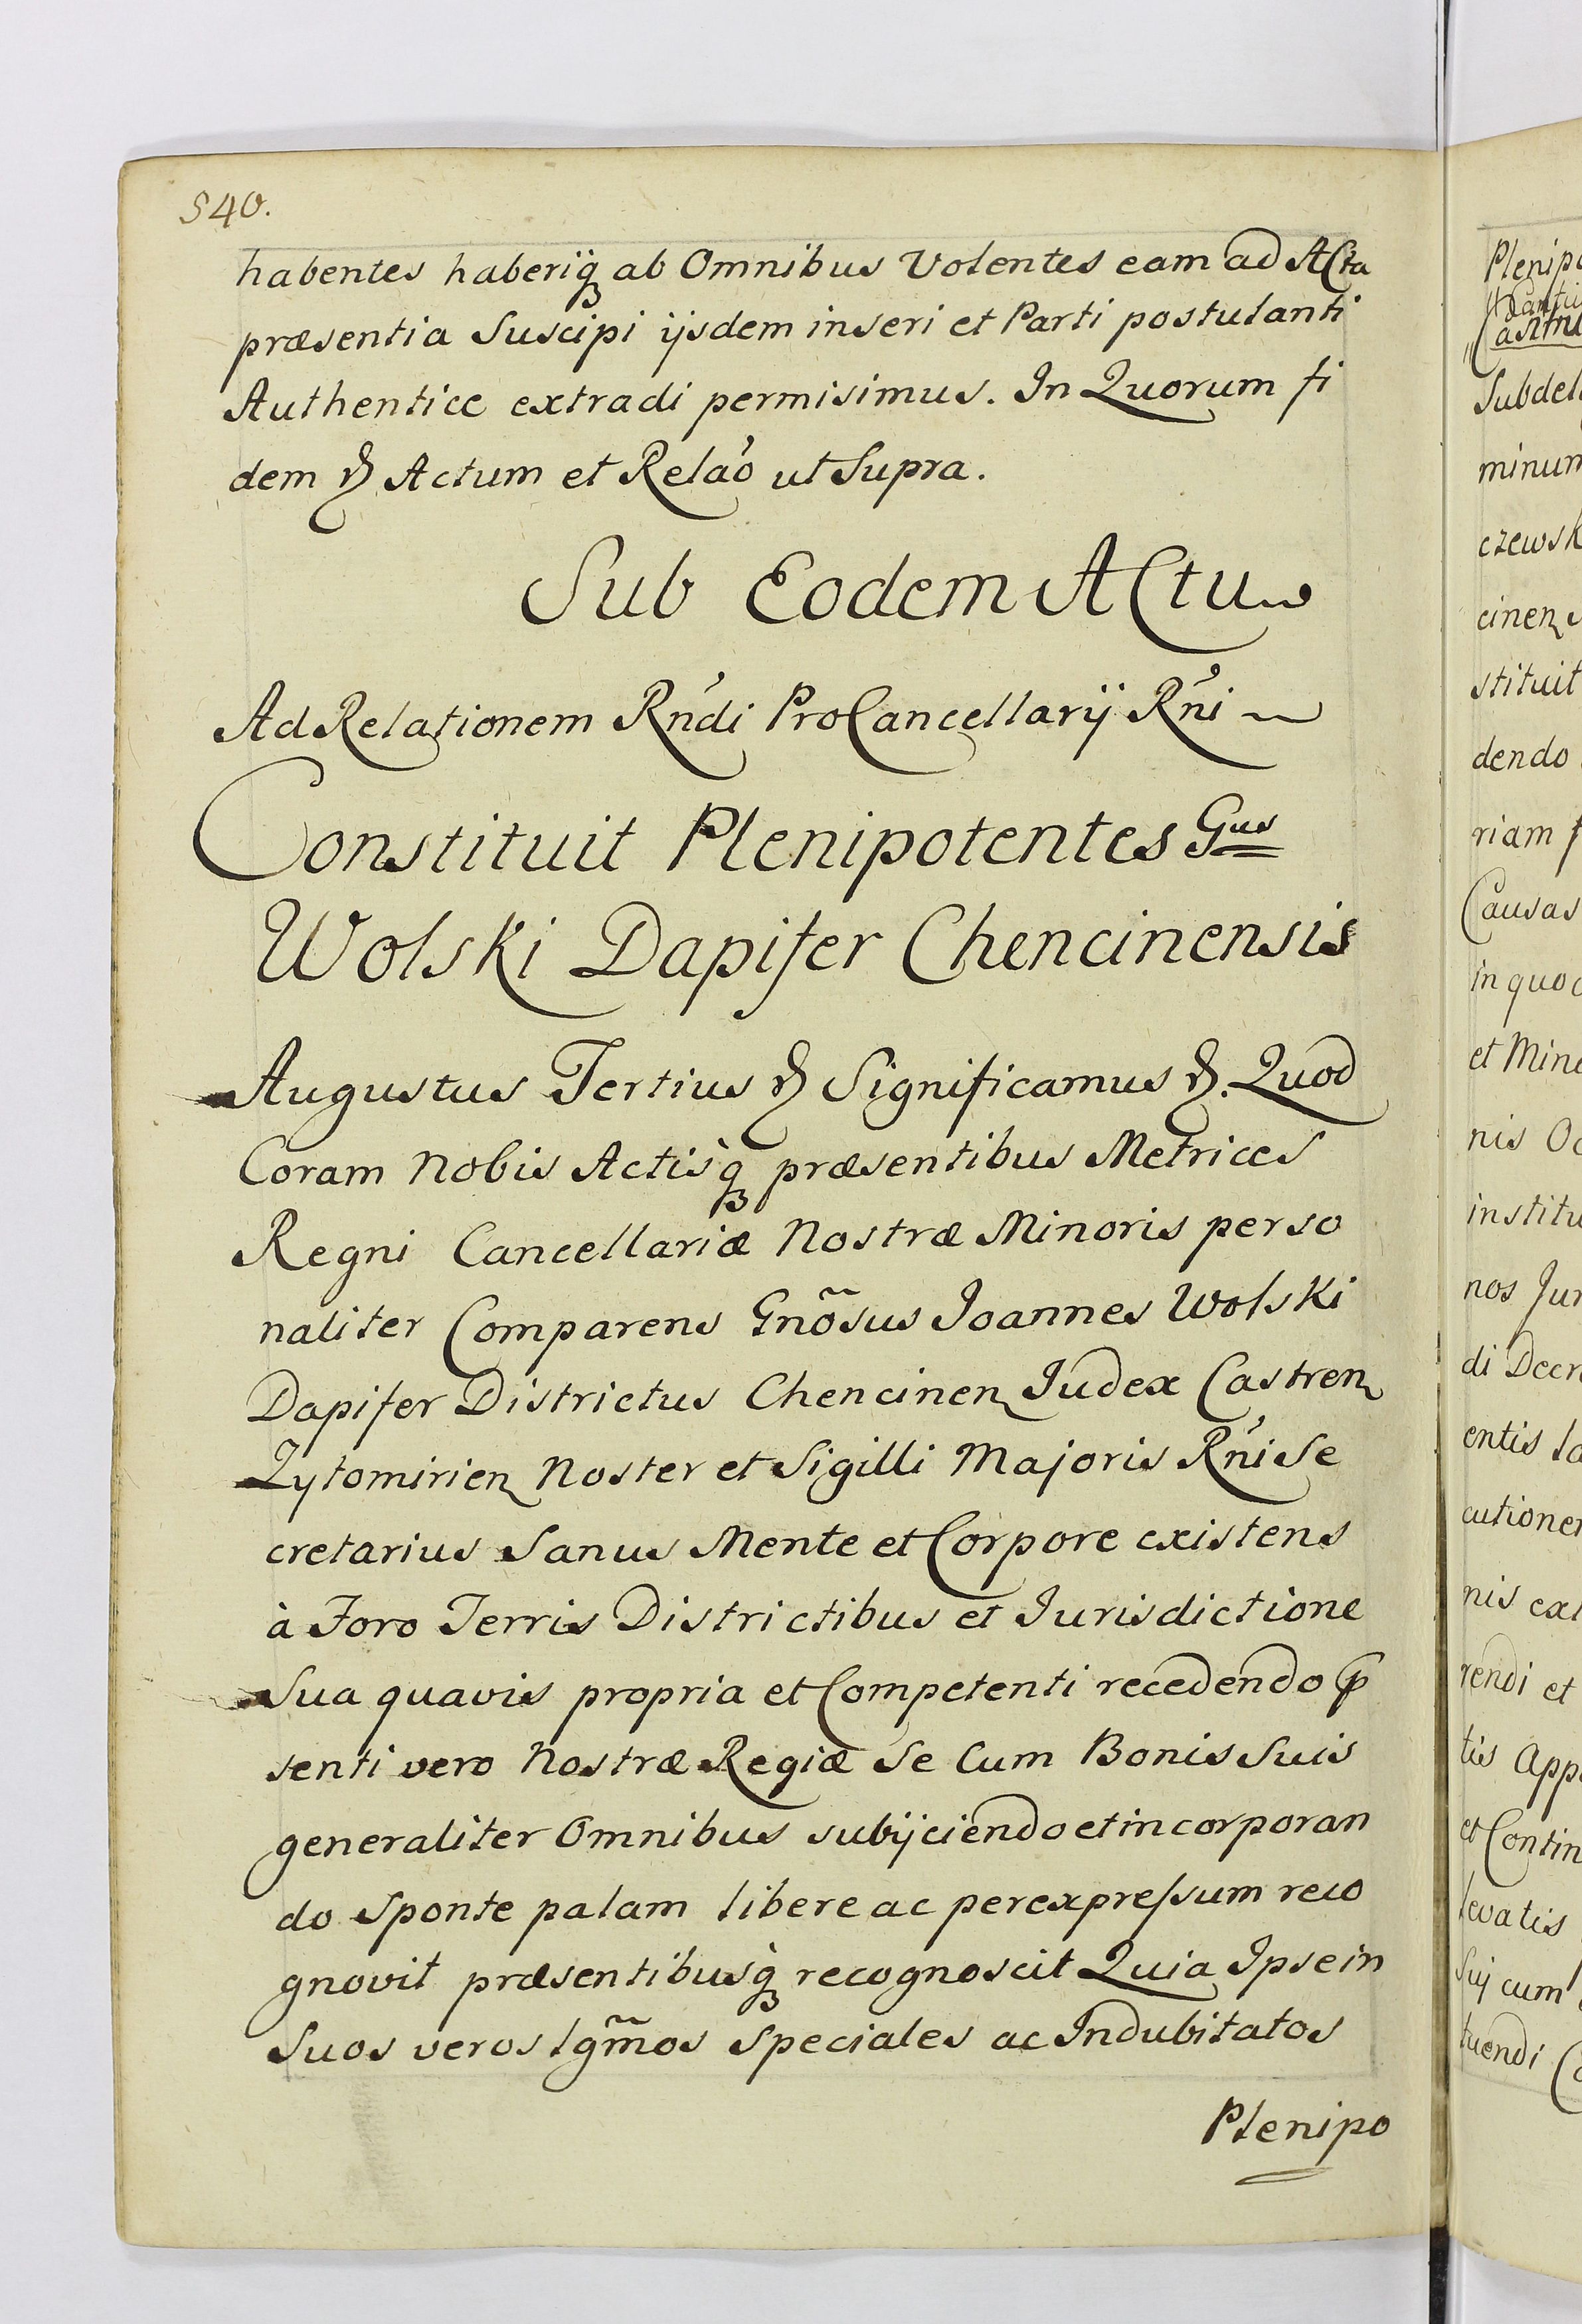 540.
habentes haberiq3 ab Omnibus Volentes eam ad Acta
præsentia Suscipi ijsdem inseri et Parti postulanti
Authentice extradi permisimus. In Quorum fi
dem &. Actum et Relaõ ut Supra.
Sub Eodem Actu
Ad Relationem Rndi ProCancellarÿ Rni
Constituit Plenipotentes Gus
Wolski Dapifer Chencinensis
Augustus Tertius & Significamus &. Quod
Coram Nobis Actisq3 præsentibus Metrices
Regni Cancellariæ Nostræ Minoris perso
naliter Comparens Gnõsus Joannes Wolski
Dapifer Districtus Chencinen Judex Castren
Zytomirien Noster et Sigilli Majoris Rni Se
cretarius Sanus Mente et Corpore existens
à Foro Terris Districtibus et Jurisdictione
Sua quavis propria et Competenti recedendo p̄
senti vero Nostræ Regiæ Se Cum Bonis Suis
generaliter Omnibus subijciendo et incorporan
do Sponte palam libere ac per expressum reco
gnovit præsentibusq3 recognoscit Quia Ipse in
Suos veros lgm̃os Speciales ac Indubitatos
Plenipo
Subdel
minum
czewsk
cinen
stituit
dendo
riam f
Causas
in quo
et Min
nis Oc
institu
nos Jur
di Decr
entis la
cutione
nis ex
rendi et
tis App
et Contin
levatis
Suj cum
tuendi